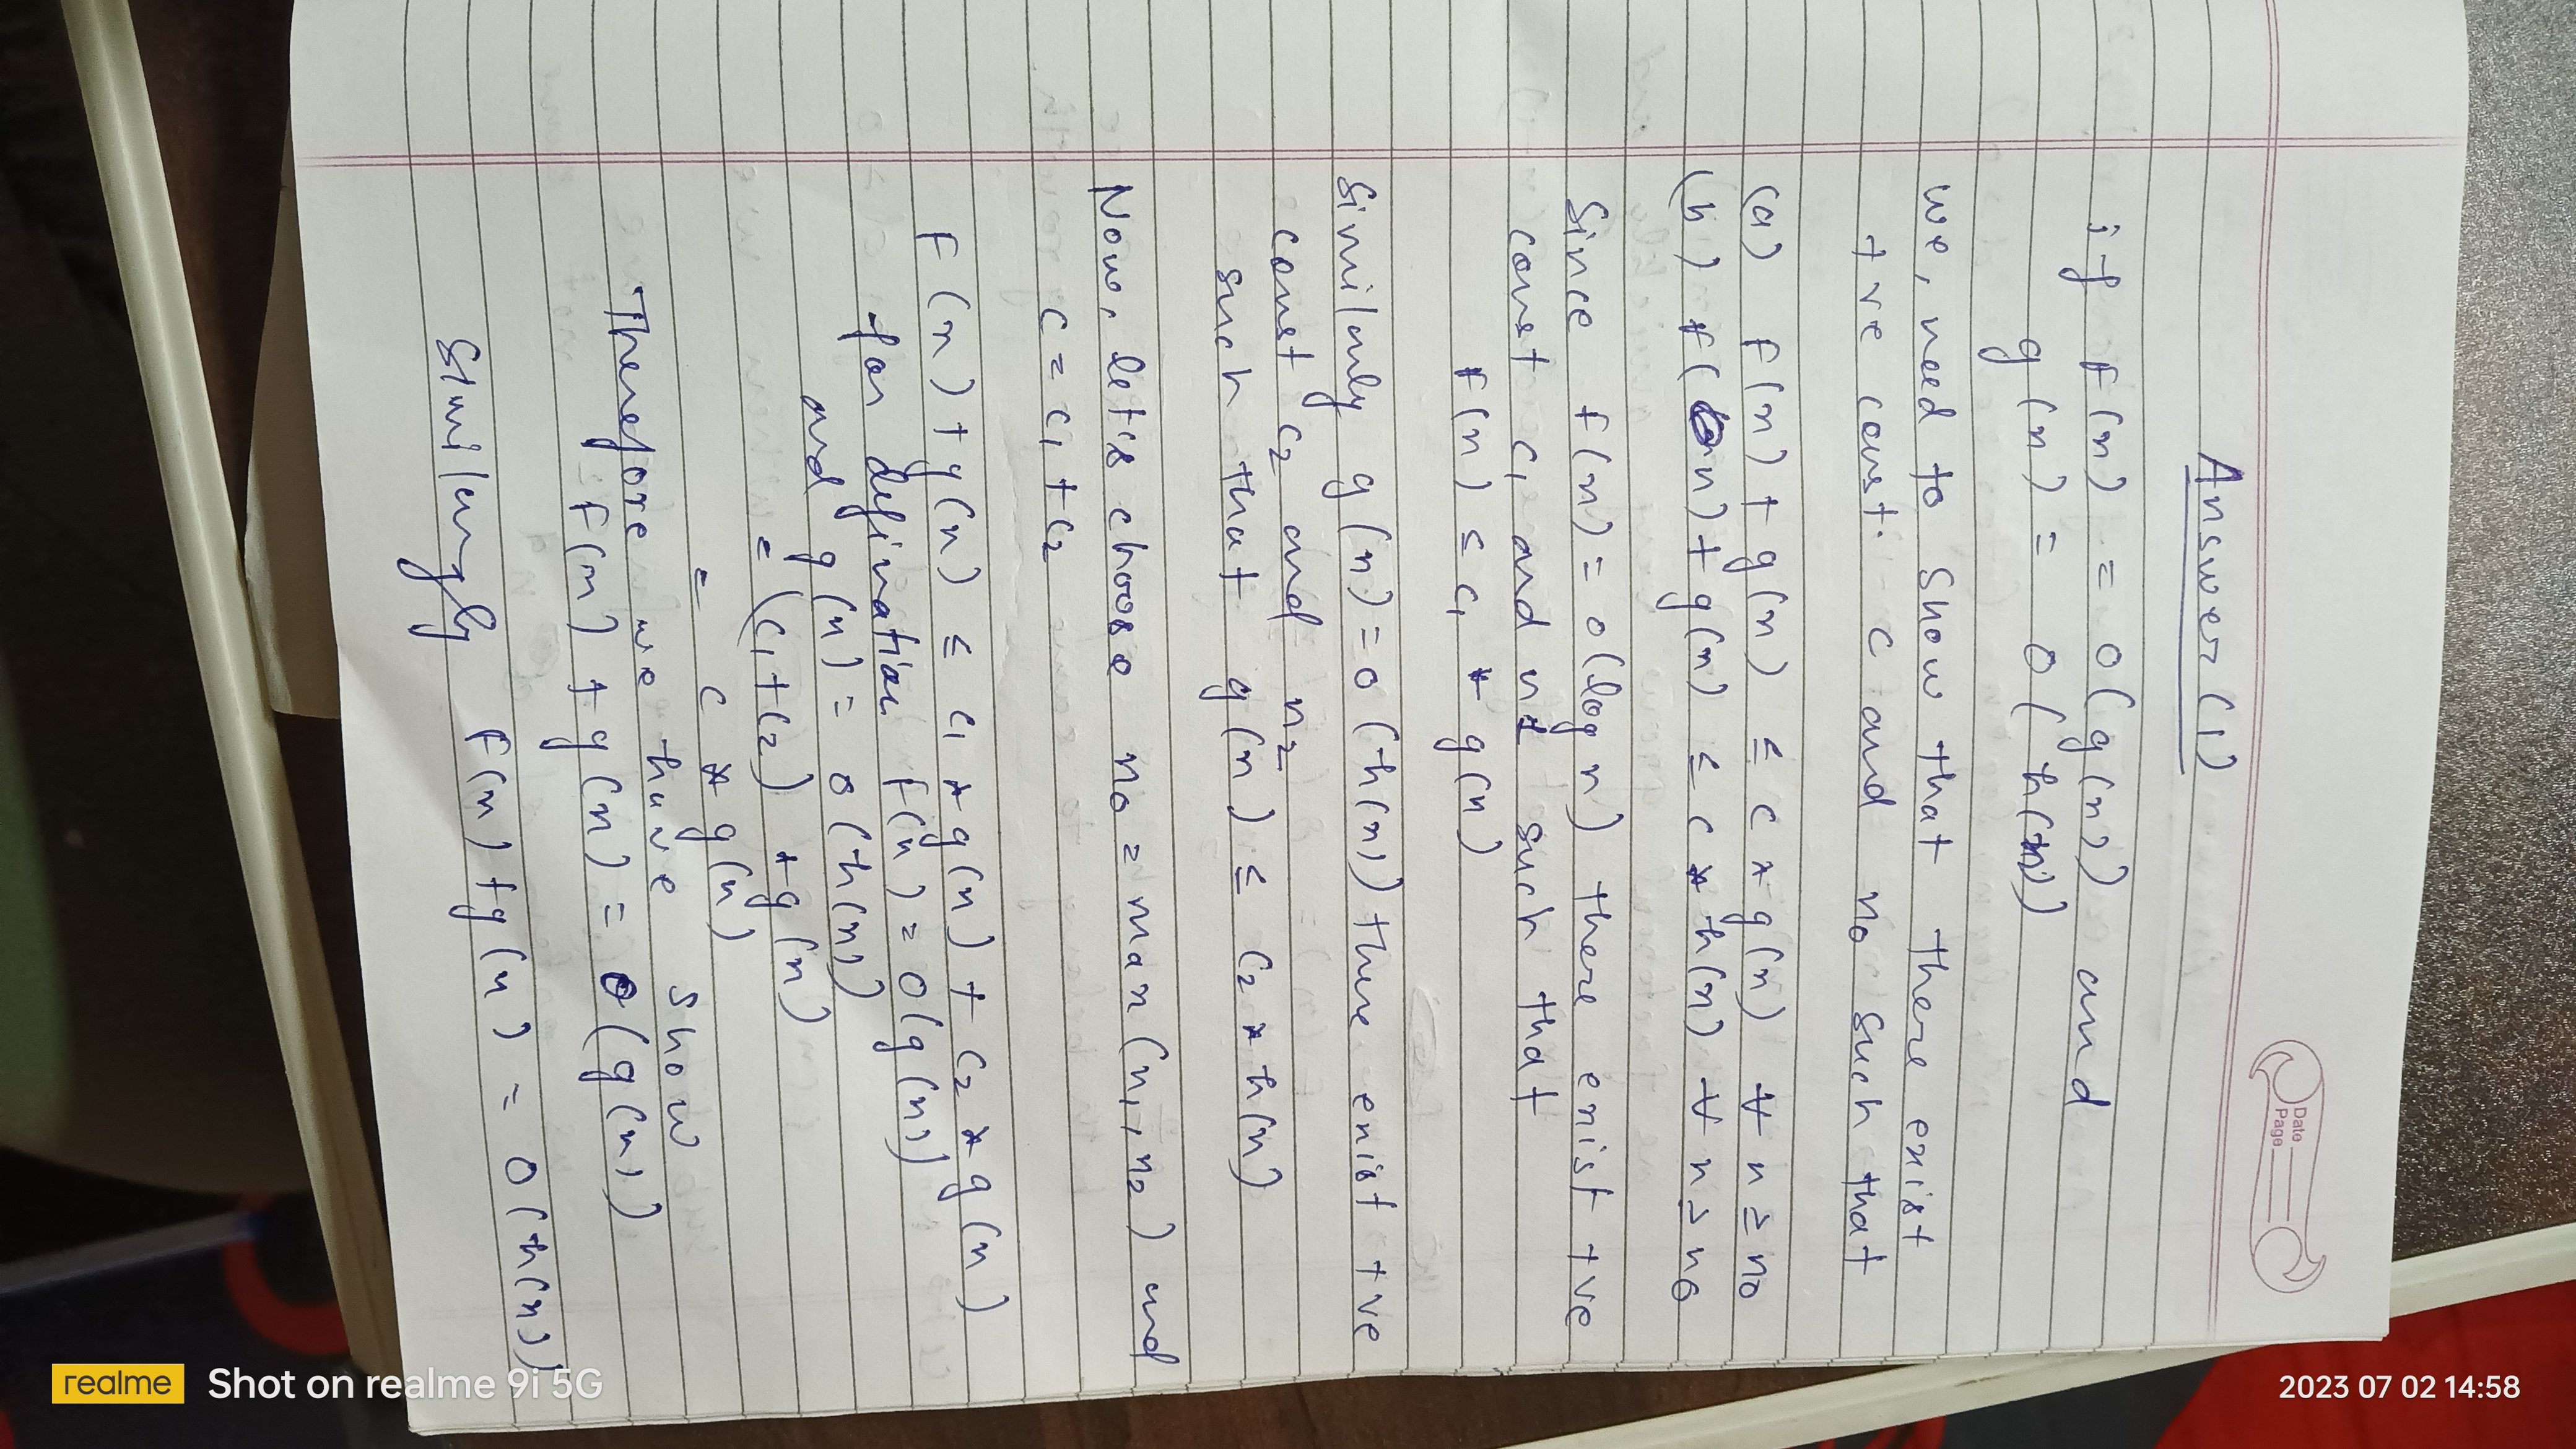 Date
Page
Answer (1)
if F(n) = O(g(n)) and
g(n) = O(h(n))
we, need to show that there exist
+ve const. C and no such that
(a) F(n) + g(n) ≤ C * g(n) ∀ n ≥ no
(b) F(n) + g(n) ≤ C * h(n) ∀ n ≥ no
Since f(n) = O(log n) there exist +ve
const C1 and n1 such that
F(n) ≤ C1 * g(n)
Similarly g(n) = O(h(n)) there exist +ve
const C2 and n2
such that g(n) ≤ C2 * h(n)
Now, let's choose no = max(n1, n2) and
C = C1 + C2
F(n) + g(n) ≤ C1 * g(n) + C2 * g(n)
for defination F(n) = O(g(n))
and g(n) = O(h(n))
= (C1 + C2) * g(n)
= C * g(n)
Therefore we have show
F(n) + g(n) = O(g(n))
Similarly F(n) + g(n) = O(h(n))
2023 07 02 14:58
realme Shot on realme 9i 5G